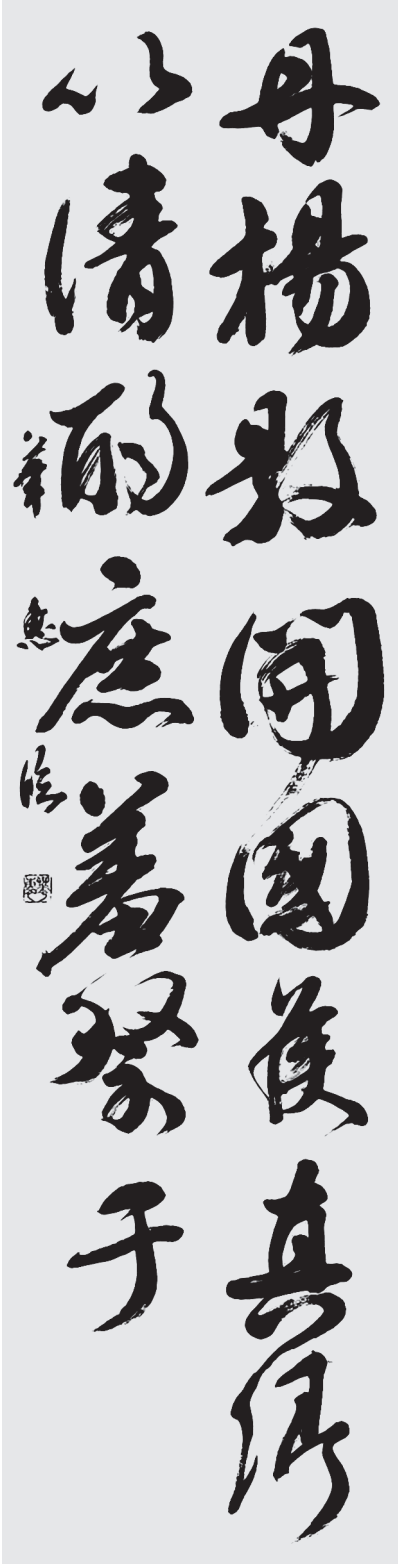 丹楊縣開國侯真卿
以清酌庶羞祭于
華惠臨